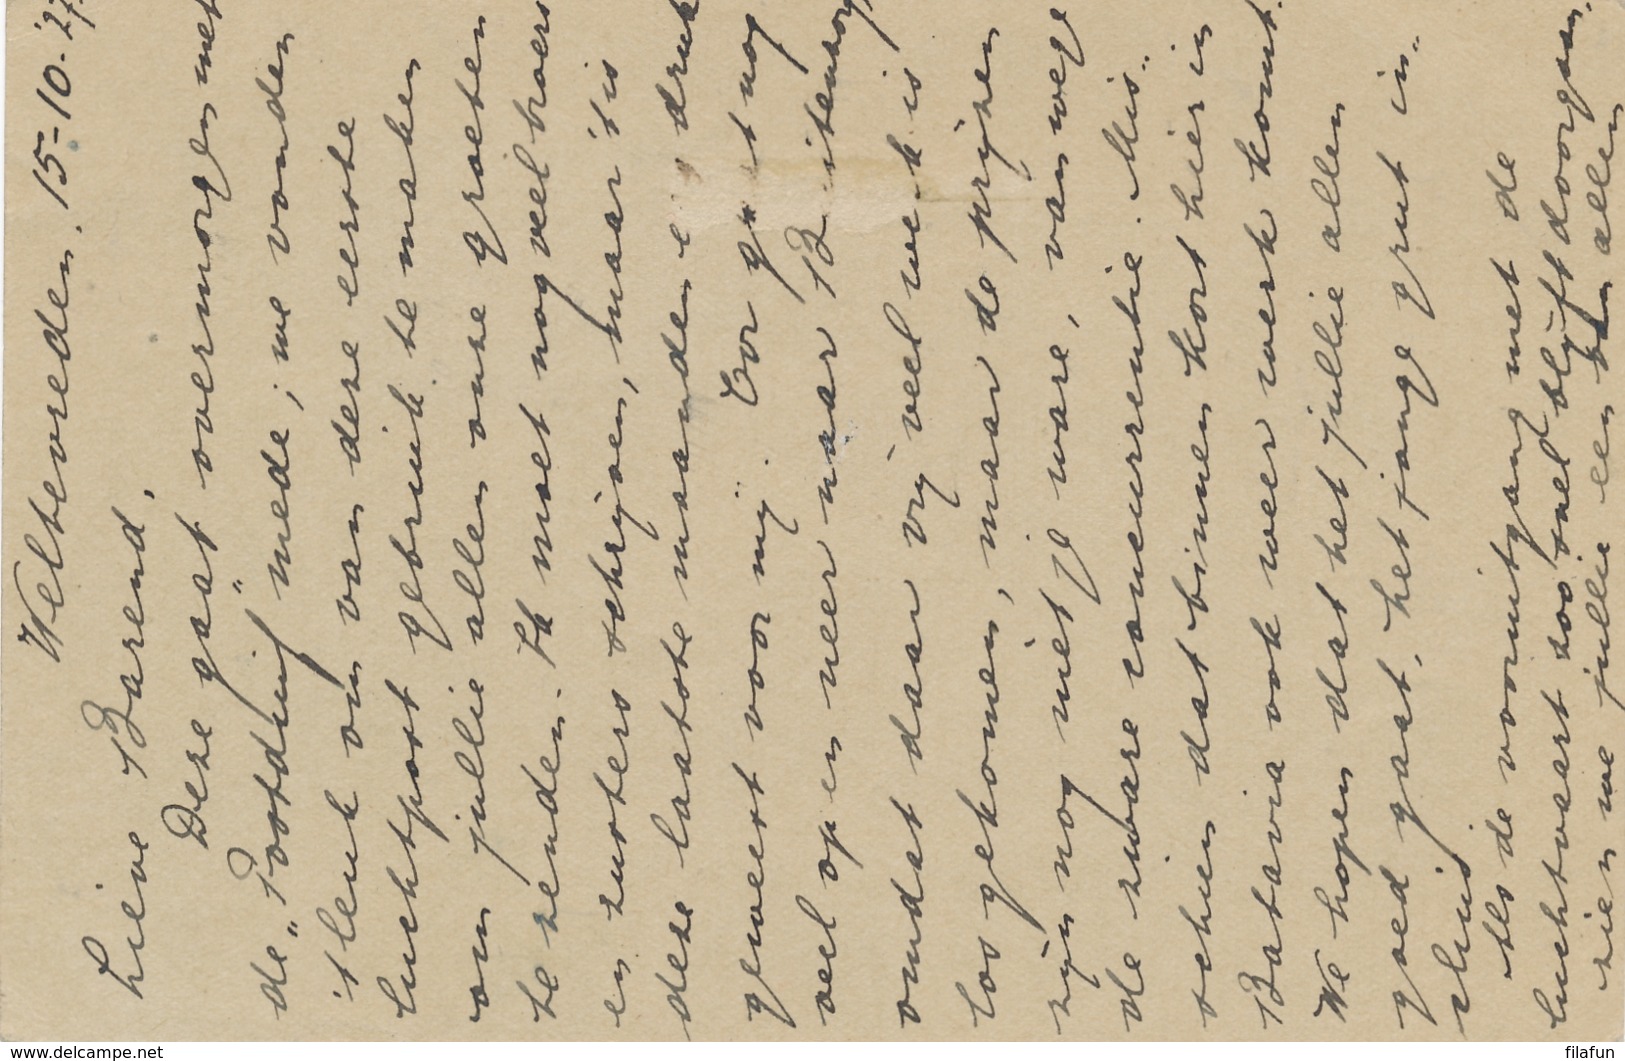 Weltevreden, 15-10-27.
Lieve Barend,
Deze gaat overmorgen met
de „Postduif" mede; we vonden
't leuk om van deze eerste
luchtpost gebruik te maken
om jullie allen onze groeten
te zenden. Ik moet nog veel broers
en zusters schrijven, maar 't is
deze laatste maanden druk
geweest voor mij. Cor gaat nog
veel op en neer naar Buitenzorg,
omdat daar vrij veel werk is
los gekomen, maar de prijzen
zijn nog niet je ware, vanwege
de zware concurrentie. Mis-
schien dat binnen kort hier in
Batavia ook weer werk komt.
We hopen dat het jullie allen
goed gaat, het jonge grut in-
cluis
Als de vooruitgang met de
luchtvaart zoo snel blijft doorgaan,
zien we jullie een allen
www.delcampe.net
filafun